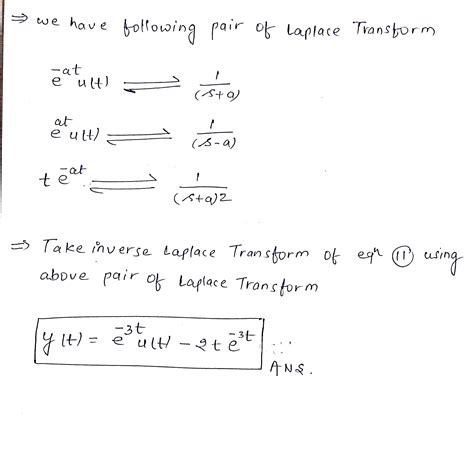 ⇒ we have following pair of Laplace Transform
e^-at u(t) ⇌ 1/(s+a)
e^at u(t) ⇌ 1/(s-a)
t e^-at ⇌ 1/(s+a)2
⇒ Take inverse Laplace Transform of eqn (11) using
above pair of Laplace Transform
y(t) = e^-3t u(t) - 2t e^-3t ...
ANS.